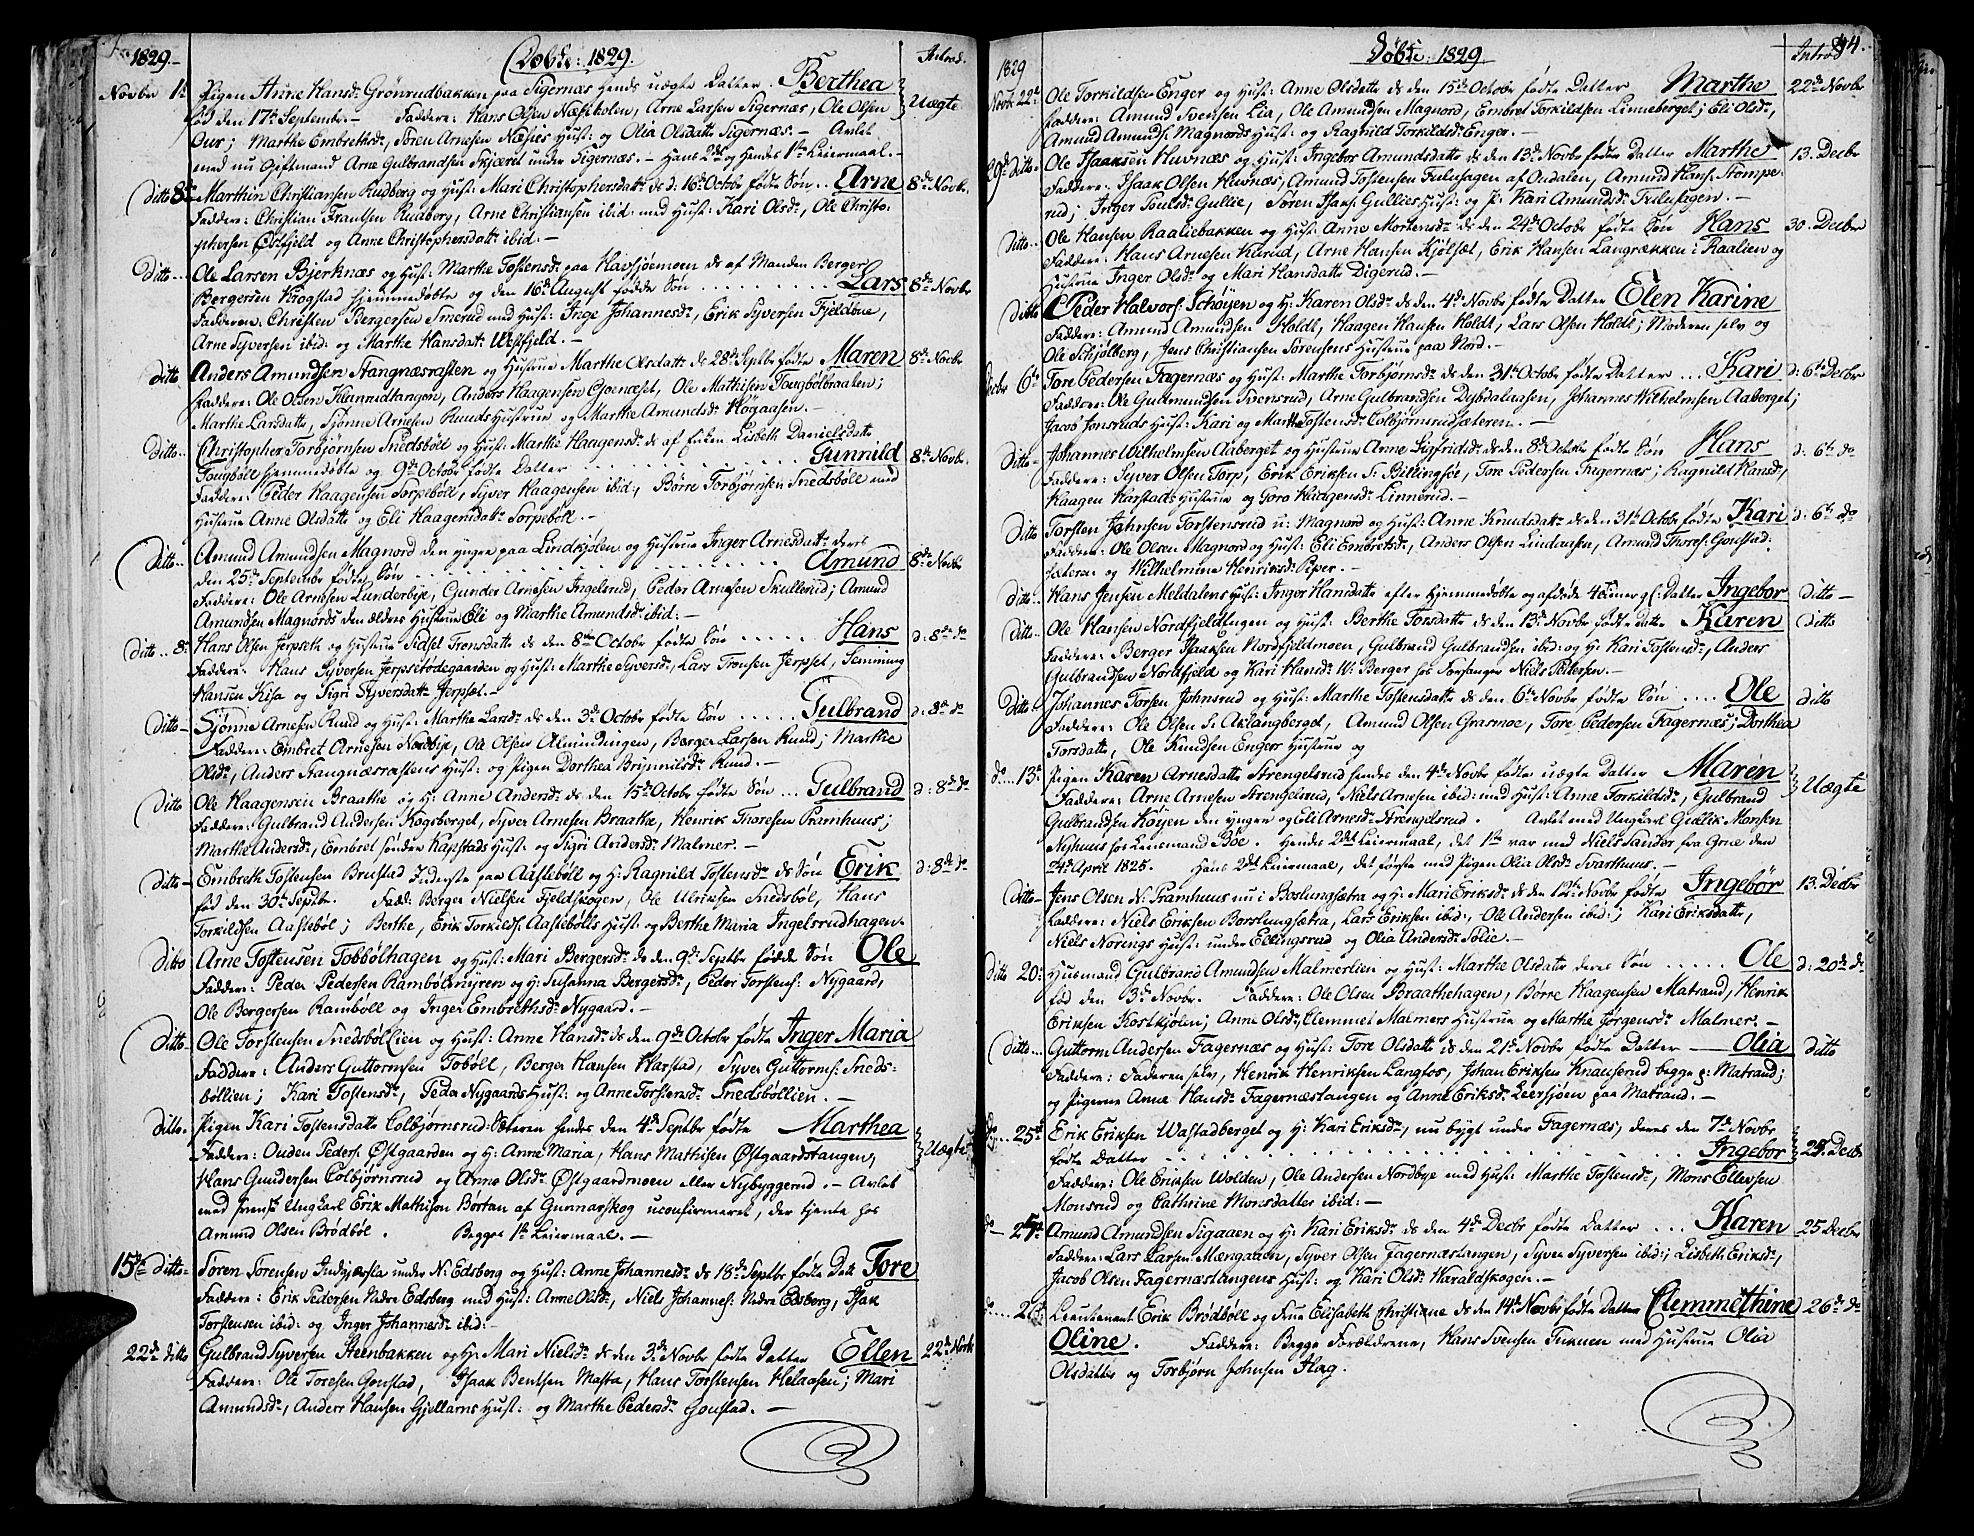 1829. Døbte: 1829. Introd.
Novbr 1te Pigen Anne Hansdr Grønrudbakken paa Sigernæs hends uægte Datter. Berthea
fød den 17de Septembr. — Faddere: Hans Olsen Næsholen, Arne Larsen Sigernæs, Ole Olsen Uægte
Our; Marthe Embrethsdr, Søren Arnesen Næsies Hust: og Olia Olsdatter Sigernæs. — Avlet
med nu Giftmand Arne Gulbrandsen Skjæret under Sigernæs. — Hans 2det og Hendes 1te Leiermaal. —
Ditto 8de Marthin Christiansen Rudberg og Hust: Mari Christophersdatr ds d. 16de Octobr fødte Søn .. Arne 8de Novbr.
Faddere: Christian Fransen Rudberg, Arne Christiansen ibid: med Hust: Kari Olsdr, Ole Christo-
phersen Østfjeld og Anne Christophersdatter ibid: —
Ditto ... Ole Larsen Bjerknæs og Hust: Marthe Tostensdr paa Havsjøemoen ds af Manden Berger
Bergersen Krogstad hjemmedøbte og den 16de August fødde Søn .......... Lars 8de Novbr
Faddere: Christen Bergersen Smerud med Hust: Inge Johannesdr, Erik Syversen Fjeldbue,
Arne Syversen ibid: og Marthe Hansdat: Westfjeld. —
Ditto Anders Amundsen Stangnæsrasten og Hustrue Marthe Olsdatter ds 28de Septbr fødte Maren 8de Novbr
Faddere: Ole Olsen Klannidtangen, Anders Haagensen Goenæset, Ole Mathisen Tougbølbraaten;
Marthe Larsdatter, Sjønne Arnesen Ruuds Hustrue og Marthe Amundsdr Høgaasen. —
Ditto .. Christopher Torbjørnsen Snedsbøll og Hust: Marthe Haagensdr ds af Enken Lisbeth Danielsdatter
Tougbøl hjemmedøbte og 9de Octobr fødte Datter ............ Gunnild 8de Novbr.
Faddere: Peder Haagensen Sorpebøl, Syver Haagensen ibid:, Børre Torbjørnsen Snedsbølle med
Hustrue Anne Olsdatter og Eli Haagensdatr Sorpebøll. —
Ditto .. Amund Amundsen Magnord den yngre paa Lindkjølen og Hustrue Inger Arnesdatr deres
den 25de Septembr fødte Søn .................. Amund 8de Novbr
Faddere: Ole Arnesen Lunderbye, Gunder Arnesen Ingelsrud, Peder Arnesen Skullerud; Amund
Amundsen Magnords den ældres Hustrue Eli og Marthe Amundsdr ibid: —
Ditto .. 8de Hans Olsen Jerpseth og Hustrue Sidsel Tronsdatter ds den 8de Octobr fødte Søn ..... Hans d: 8de do
Faddere: Hans Syversen Jerpsetødegaarden og Hust: Marthe Syversdr, Lars Tronsen Jerpset, Semming
Hansen Kisa og Sigri Syversdatter Jerpset. —
Ditto — Sjønne Arnesen Ruud og Hust: Marthe Larsdr ds den 3de Octobr fødte Søn ..... Gulbrand d: 8de do
Faddere: Embret Arnesen Nordbye, Ole Olsen Almindingen, Berger Larsen Ruud; Marthe
Olsdr, Anders Stangnæsrastens Hust: og Pigen Dorthea Brynnilsdr Ruud. —
Ditto Ole Haagensen Braathe og H: Anne Andersdr ds den 15de Octobr fødte Søn ... Gulbrand d: 8de do
Faddere: Gulbrand Andersen Kogsberget, Syver Arnesen Braathe, Henrik Thoresen Pramhuus;
Marthe Andersdr, Embret søndre Kapstads Hust: og Sigri Andersdr Malmer. —
Ditto — Embreth Tostensen Brustad Inderste paa Aaslebøll og H: Ragnild Tostensdr ds Søn Erik d: 8de do
fød den 30te Septbr. Fadd: Berger Nielsen Fjeldskogen, Ole Ulriksen Snedsbøl, Hans
Torkildsen Aaslebøl; Berthe, Erik Torkilds: Aaslebølls Hust: og Berthe Maria Ingelsrudhagen.
Ditto Arne Tostensen Tobbølhagen og Hust: Mari Bergersdr ds den 9de Septbr fødde Søn Ole
Faddere: Peder Pedersen Rambølmyren og H: Susanna Bergersdr, Peder Torstens: Nygaard,
Ole Bergersen Rambøll og Inger Embrethsdr Nygaard. —
Ditto — Ole Torstensen Snedsbøllien og Hust: Anne Hansdr ds den 9de Octobr fødte Inger Maria
Faddere: Anders Guttormsen Tobøll, Berger Hansen Harstad, Syver Guttorms: Sneds-
bøllien; Kari Tostensdr, Peder Nygaards Hust: og Anne Torstensdr Snedsbøllien. —
Ditto. Pigen Kari Tostensdatter Colbjørnsrud-Sæteren hendes den 4de Septbr fødte Marthea
Faddere: Ouden Peders: Østgaarden og H: Anne Maria, Hans Mathisen Østgaardstangen, Uægte
Hans Gundersen Colbjørnsrud og Anne Olsdr Østgaardmoen eller Nybyggerud. — Avlet
med svensk Ungkarl Erik Mathison Bortan af Gunnarskog uconfirmeret, der tjente hos
Amund Olsen Brødbøl. Begges 1te Leiermaal. —
15de Ditto — Søren Sørensen Indgjærsla under N: Edsberg og Hust: Anne Johannesdr ds 18de Septbr fødte Datr Tore
Faddere: Erik Pedersen Nedre Edsberg med Hust: Anne Olsdr, Niels Johannes: Nedre Edsberg, Isak
Torstensen ibid: og Inger Johannesdr ibid: —
22de ditto Gulbrand Syversen Steenbakken og H: Mari Nielsdr ds den 3de Novbr fødte Datter Ellen 22de Novbr
Faddere: Ole Toresen Goustad, Isaak Bentsen Mastra, Hans Torstensen Helaasen; Mari
Amundsdr, Anders Hansen Gjellarns Hust: og Marthe Pedersdr Goustad. —
1829 Døbte: 1829. Introd 44.
Novbr 22de Ole Torkildsen Enger og Hust: Anne Olsdatter ds den 15de Octobr fødte Datter Marthe 22de Novbr
Faddere: Amund Svensen Lia, Ole Amundsen Magnord, Embret Torkildsen Linneberget; Eli Olsdr,
Amund Amunds: Magnords Hust: og Ragnild Torkildsdr Enger. —
29de ditto. Ole Isaaksen Huvnæs og Hust: Ingebor Amundsdatter ds den 13de Novbr fødte Datter Marthe 13. Decbr
Faddere: Isaak Olsen Huvnæs, Amund Tostensen Fuluhagen af Oudalen, Amund Hans: Stompe-
rud; Inger Poulsdr Gullie, Søren Isak: Gullies Hust: og P: Kari Amundsdr Fulustegen. —
Ditto .. Ole Hansen Raaliebakken og Hust: Anne Mortensdr ds den 24de Octobr fødte Søn Hans 30. Decbr
Faddere: Hans Arnesen Kurud, Arne Hansen Kjølset, Erik Hansen Langrækken i Raalien og
Hustrue Inger Olsdr og Mari Hansdatter Digerud. —
Ditto Peder Halvors: Schøyen og H: Karen Olsdr ds den 4de Novbr fødte Datter Elen Karine
Faddere: Amund Amundsen Holdt, Haagen Hansen Holdt, Lars Olsen Holdt; Moderen selv og
Ole Schjølberg, Jens Christiansen Sørensens Hustrue paa Nord. —
Decbr 6te Tore Pedersen Fagernæs og Hust: Marthe Torbjørnsdr ds den 31te Octobr fødte Datter ... Kari d: 6te Decbr
Faddere: Ole Gudmundsen Svensrud, Arne Gulbrandsen Dybdalaasen, Johannes Wilhelmsen Aaberget;
Jacob Jonsruds Hust: Kari og Marthe Tostensdr Colbjørnsrudsæteren. —
Ditto. Johannes Wilhelmsen Aaberget og Hustrue Anne Sigfridsdr ds den 8de Octobr fødte Søn Hans d: 6te do
Faddere: Syver Olsen Torp, Erik Eriksen S: Billingsøe, Tore Pedersen Fagernæs; Ragnild Hansdr,
Haagen Harstads Hustrue og Toro Helgensdr Linnerud. —
Ditto Torsten Johnsen Torstensrud u: Magnord og Hust: Anne Knudsdatter ds den 31te Octobr fødte Kari d: 6te do
Faddere: Ole Olsen Magnord og Hust: Eli Embretsdr, Anders Olsen Lindaasen, Amund Thores: Goustad-
sæteren og Wilhelmine Henriksdr Piper. —
Ditto .. Hans Jensen Meldalens Hust: Inger Hansdatter efter Hjemmedøbte og afdøde 4 timer gl: Datter Ingebor Ditto —
Ditto. Ole Hansen Nordfjeldengen og Hust: Berthe Tordsdatter ds den 13de Novbr fødte ditto Karen Ditto
Faddere: Berger Isaksen Nordfjeldmoen, Gulbrand Gulbrandsen ibid: og H: Kari Tostensdr, Anders
Gulbrandsen Nordfjeld og Kari Hansdr W: Berger hos Forsanger Niels Pedersen. —
Ditto. Johannes Torsen Johnsrud og Hust: Marthe Tostensdatter ds den 6te Novbr fødte Søn .... Ole Ditto
Faddere: Ole Olsen S: Aklangberget, Amund Olsen Grasmoe, Tore Pedersen Fagernæs; Dorthea
Torsdatter, Ole Knudsen Engers Hustrue og
do ... 13de Pigen Karen Arnesdatter Strengelsrud hendes den 4de Novbr fødte uægte Datter Maren
Faddere: Arne Arnesen Strengelsrud, Niels Arnesen ibid: med Hust: Anne Torkildsdr, Gulbrand Uægte
Gulbrandsen Køyen den yngre og Eli Arnesdr Strengelsrud. Avlet med Ungkarl Gullik Monsen
Nyhuus hos Leiermand Bøe. Hendes 2det Leiermaal, det 1te var med Niels Sander, fra Grue den
24de April 1825. Hans 2det Leiermaal, det første med Pigen Olia Olsdr Svarthuus. —
Ditto — Jens Olsen N: Pramhuus nu i Boslungsætra og H: Mari Eriksdr ds den 12te Novbr fødte Ingebør 13. Decbr
Faddere: Niels Eriksen Borslungsetra, Lars Eriksen ibid:, Ole Andersen ibid:; Kari Eriksdatter,
Niels Norings Hust: under Ellingsrud og Olia Andersdr Solie. —
Ditto 20: Huusmand Gulbrand Amundsen Malmerlien og Hust: Marthe Olsdatter deres Søn ..... Ole d: 20de do
fød den 3de Novbr. Faddere: Ole Olsen Braathehagen, Børre Haagensen Matrand, Henrik
Eriksen Kostkjølen; Anne Olsdr, Clemmet Malmers Hustrue og Marthe Jørgensdr Malmer. —
Ditto .... Guttorm Andersen Fagernæs og Hust: Tore Olsdatter ds den 21de Novbr fødte Datter — Olia Ditto
Faddere: Faderen selv, Henrik Henriksen Langfos, Johan Eriksen Knauserud begge p: Matrand;
og Pigerne Anne Hansdr Fagernæstangen og Anne Eriksdr Leersjøen paa Matrand. —
do ... 25de Erik Eriksen Wastadberget og H: Kari Eriksdr, nu bygt under Fagernæs, deres den 7de Novbr
fødte Datter .................. Ingebor 25. Decbr
Faddere: Ole Eriksen Wolden, Ole Andersen Nordbye med Hust: Marthe Tostensdr, Mons Ellevsen
Monsrud og Cathrine Monsdatter ibid: —
do — 25de Amund Amundsen Sigaaen og H: Kari Eriksdr ds den 4de Decbr fødte Datter ... Karen 25 Decbr
Faddere: Lars Larsen Mængaaen, Syver Olsen Fagernæstangen, Syver Syversen ibid:; Lisbeth Eriksdr,
Jacob Olsen Fagernæstangens Hust: og Kari Olsdr Haraldskogen. —
do .... 26de Lieutenant Erik Brødbøll og Frue Elisabeth Christiane ds den 14de Novbr fødte Datter Clemmethine 26de do
Oline. Faddere: Begge Forældrene, Hans Svensen Tuknen med Hustrue Olia
Olsdatter og Torbjørn Johnsen Hag.